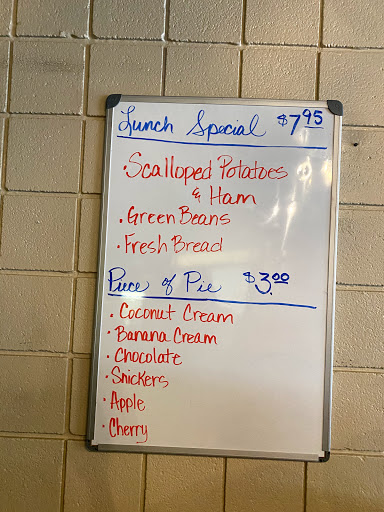 Lunch Special $7.95
• Scalloped Potatoes
& Ham
• Green Beans
• Fresh Bread
Piece of Pie $3.00
• Coconut Cream
• Banana Cream
• Chocolate
• Snickers
• Apple
• Cherry